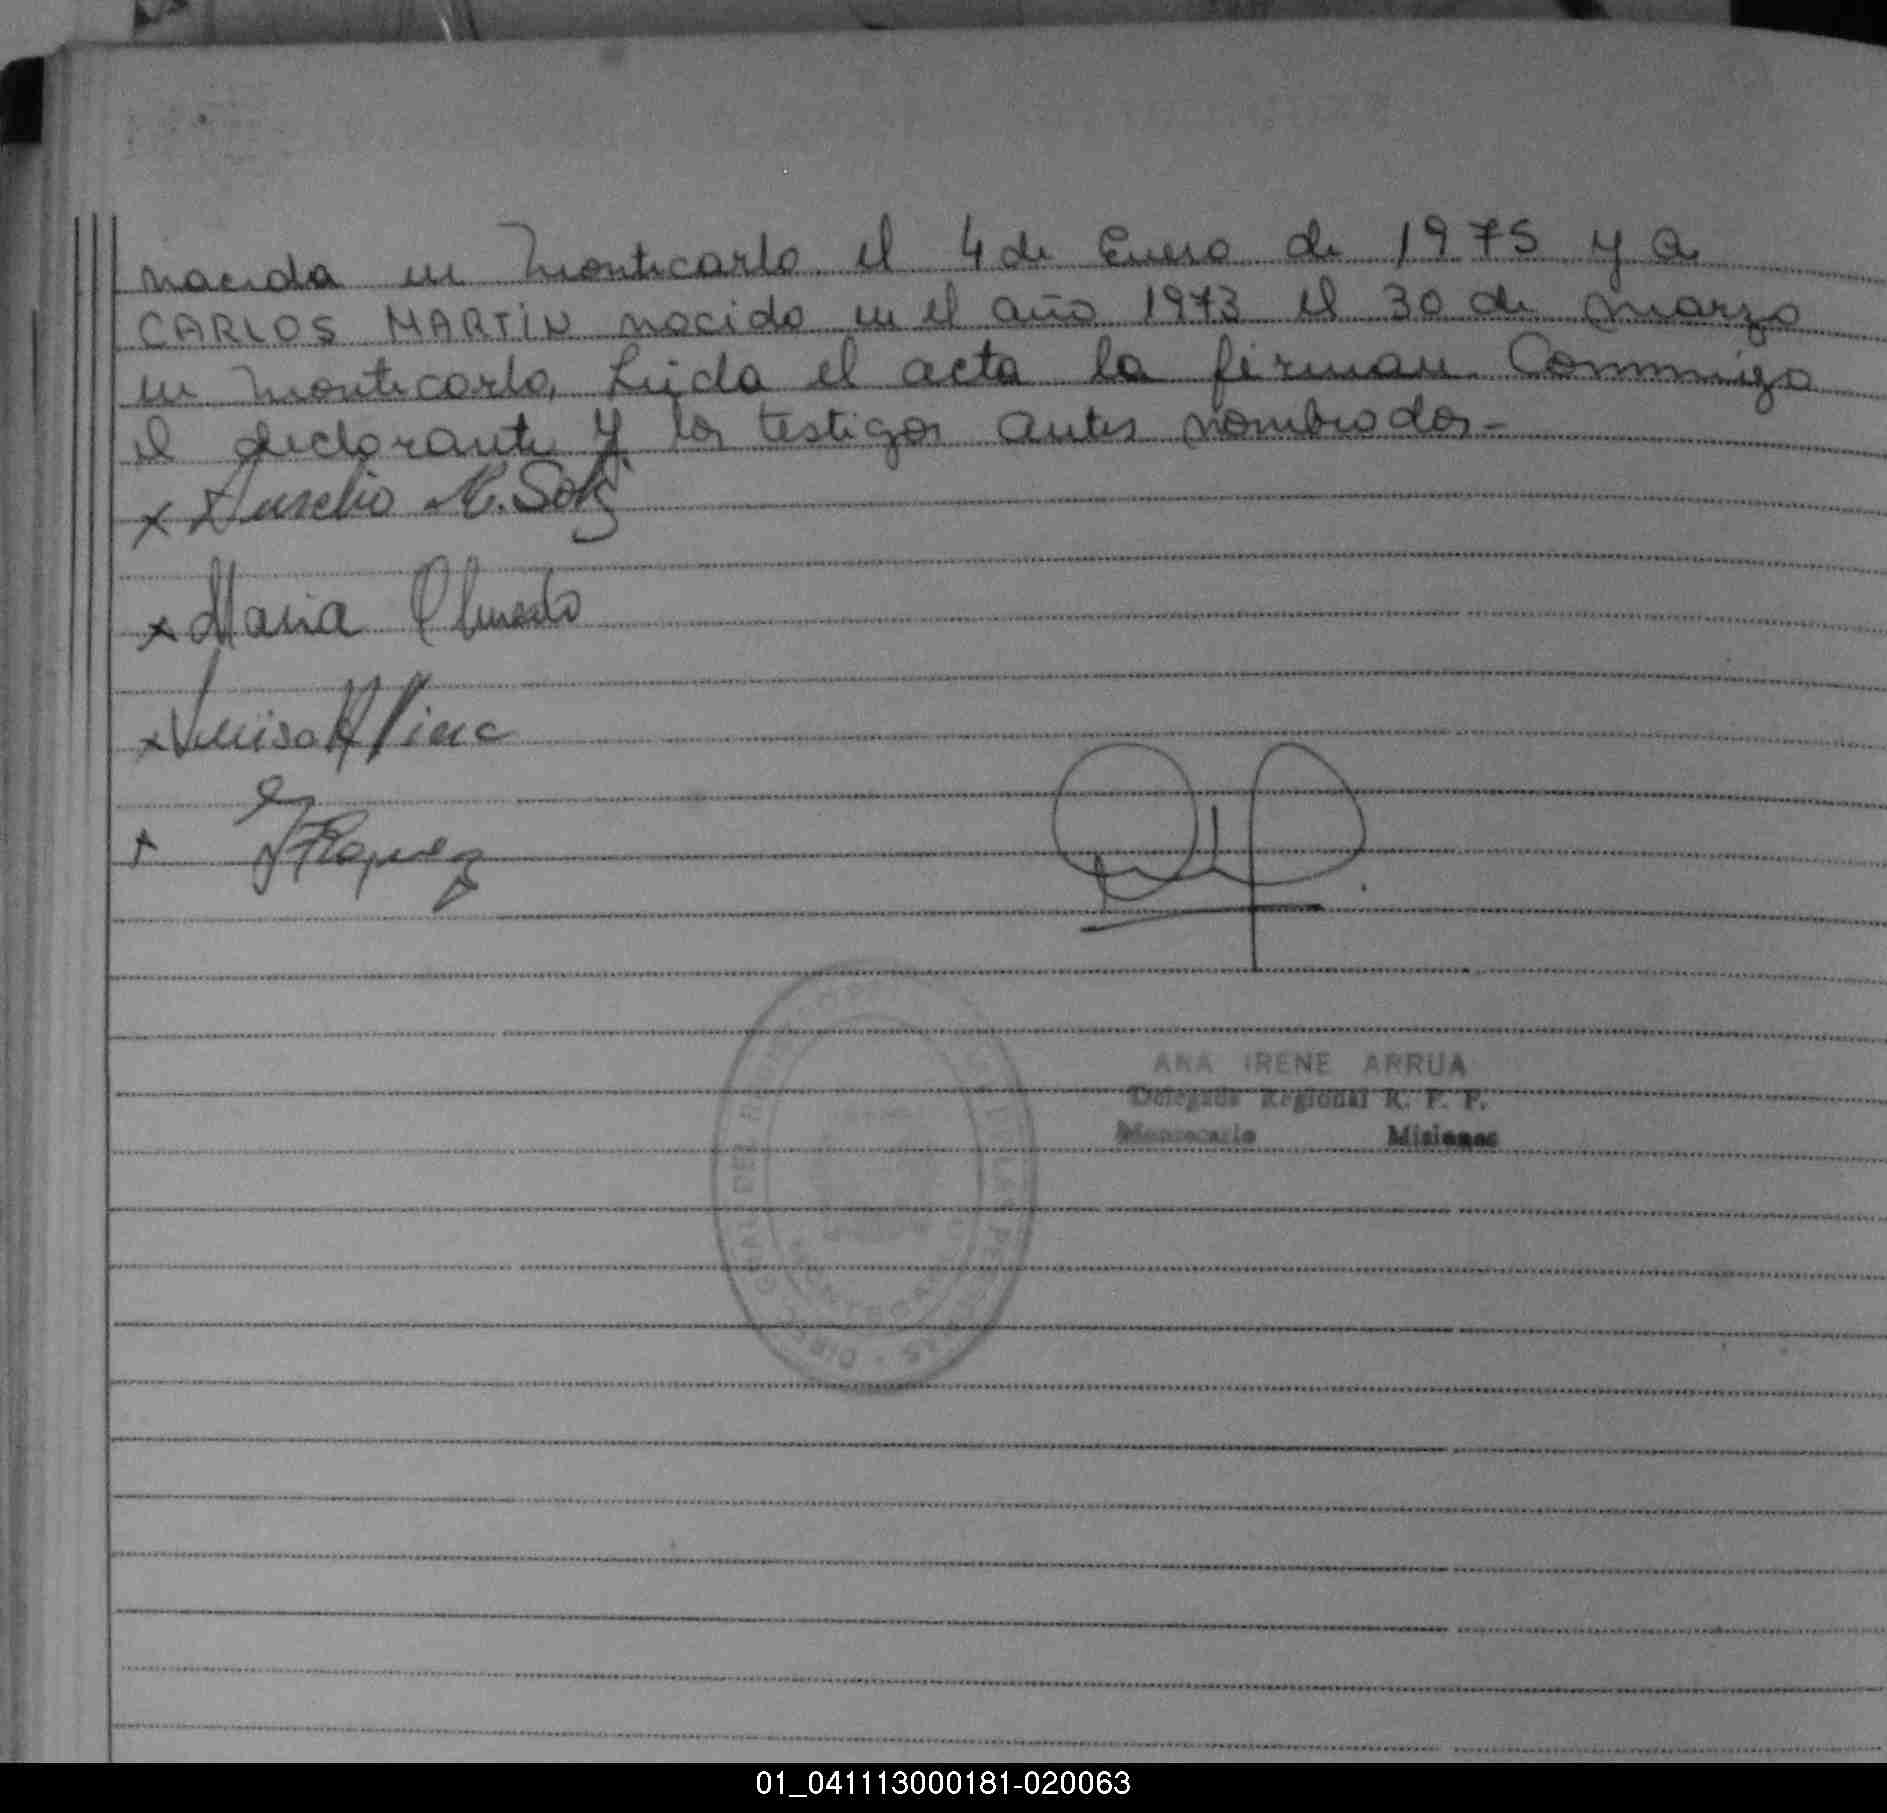 nacida en Montecarlo el 4 de Enero de 1975 y a
CARLOS MARTÍN nacido en el año 1973 el 30 de marzo
en Montecarlo, Leída el acta la firman Conmmigo
el declarante y los testigos antes nombrados-
x Aurelio R. Solis
x Maria Olmedo
x Luisa
x
ANA IRENE ARRUA
Delegada Regional R. P. P.
Montecarlo Misiones
DIREC. GRAL DEL REGISTRO DE LAS PERSONAS
MONTECARLO
01_041113000181-020063